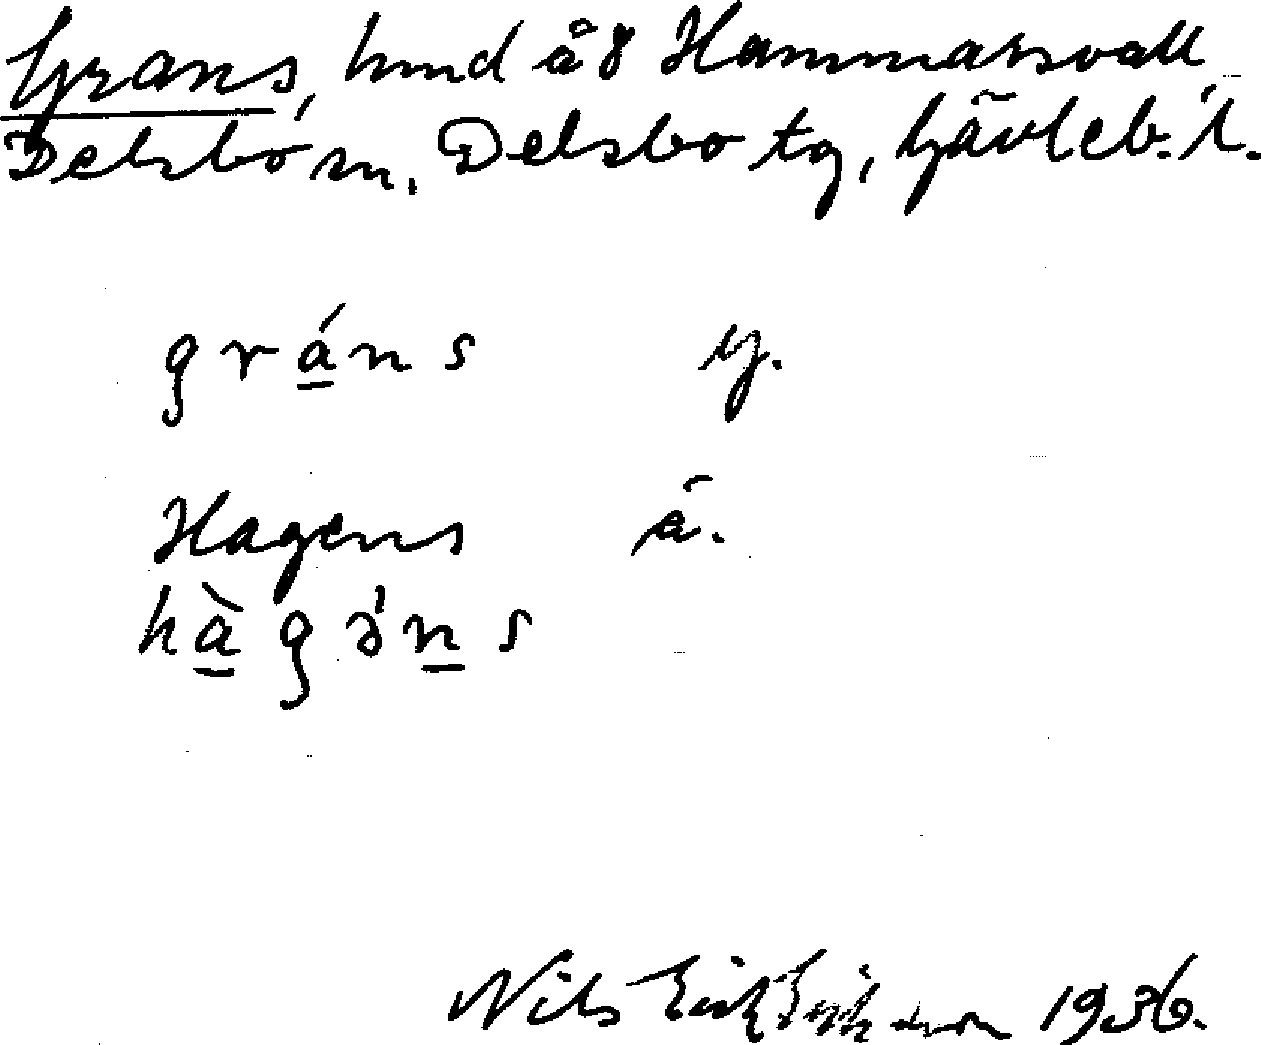 Grans, hmd å 8 Hammarsvall
Delsbo sn. Delsbo tg, Gävleb. l.
grá̱ns y.
Hagens ä.
hà̱gə́ṉs
Nils Erik 1936.